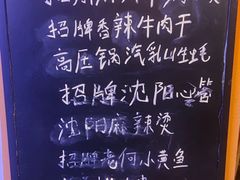 招牌香辣牛肉干
高压锅汽乳山生蚝
招牌沈阳心管
沈阳麻辣烫
招牌老何小黄鱼